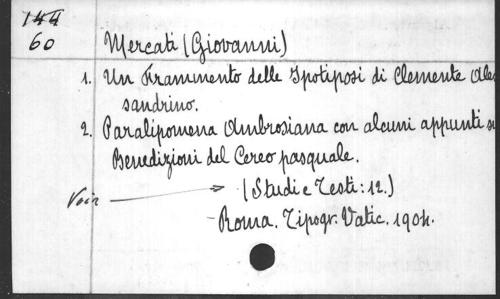 144
60
Mercati (Giovanni)
1. Un Frammento delle Ipotiposi di Clemente Ales
sandrino.
2. Paralipomena Ambrosiana con alcuni appunti su
Benedizioni del Cereo pasquale.
Voir → (Studi e Testi: 12.)
Roma. Tipogr. Vatic. 1904.